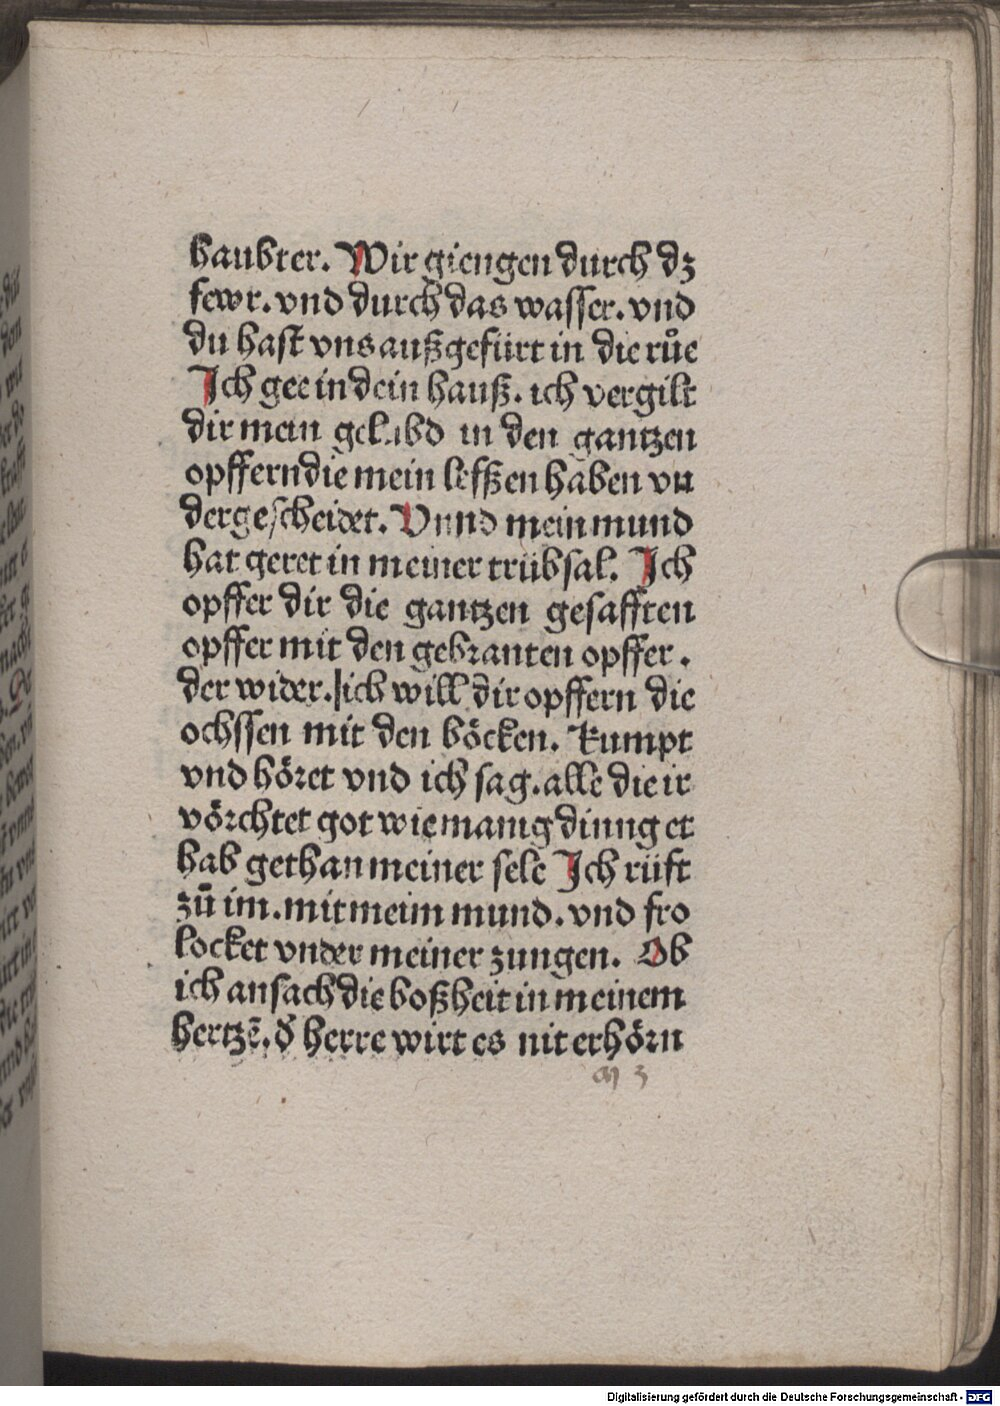 haubter. Wir giengen durch dz
fewr. vnd durch das wasser. vnd
du hast vns außgefürt in die růe
Ich gee in dein hauß. ich vergilt
dir mein gelubd in den gantzen
opffern die mein lefßen haben vn
dergescheidet. Vnnd mein mund
hat geret in meiner trübsal. Ich
opffer dir die gantzen gesafften
opffer mit den gebranten opffer.
der wider. ich will dir opffern die
ochssen mit den böcken. Kumpt
vnd höret vnd ich sag. alle die ir
vörchtet got wie manig dinng er
hab gethan meiner sele Ich rüft
zů im. mit meim mund. vnd fro
locket vnder meiner zungen. Ob
ich ansach die boßheit in meinem
hertzē. d̕ herre wirt es nit erhörn
m 3
Digitalisierung gefördert durch die Deutsche Forschungsgemeinschaft - DFG